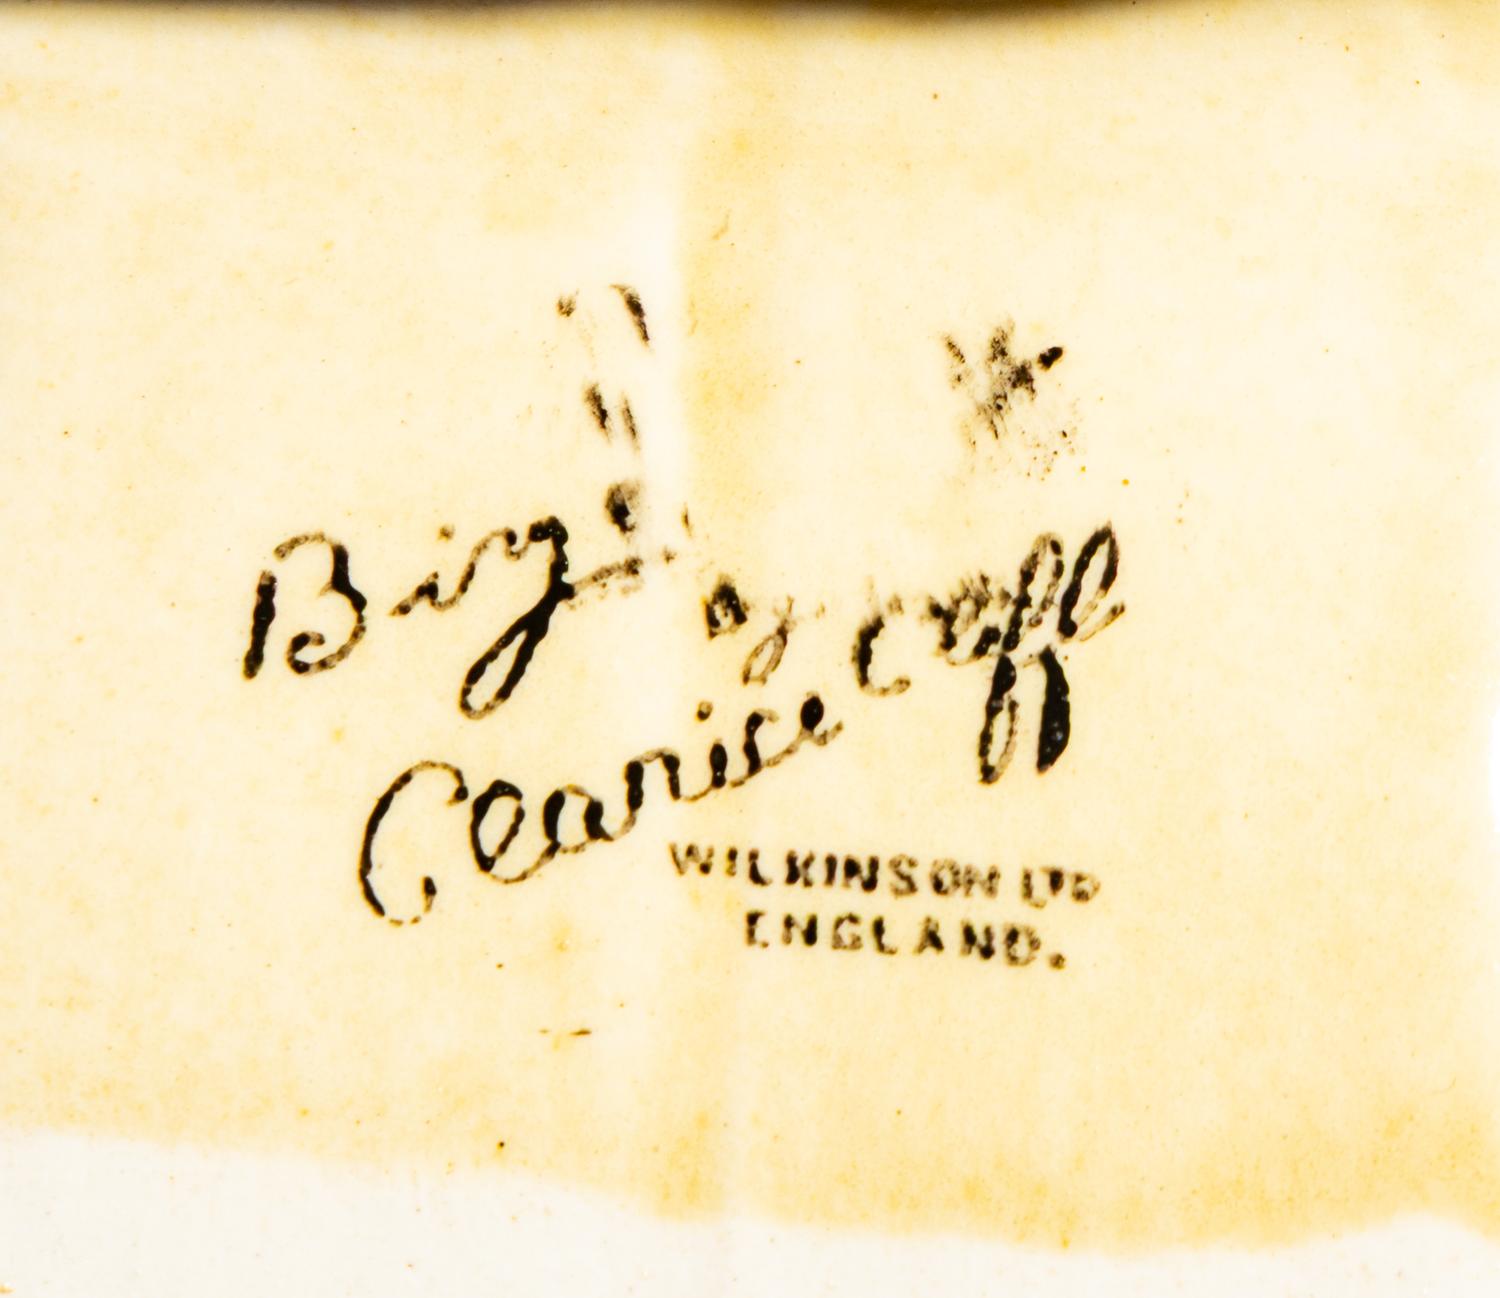 by
Clarice Cliff
WILKINSON LTD
ENGLAND.